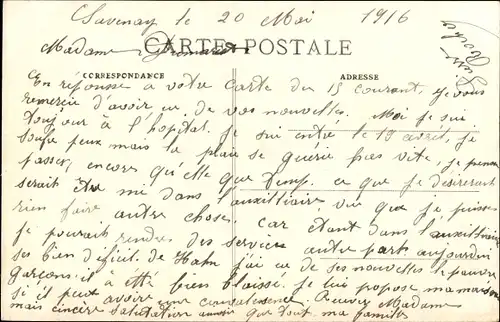 Savenay le 20 Mai 1916
Madame
CARTE POSTALE
CORRESPONDANCE
ADRESSE
En réponsse a votre Carte du 15 courant, je vous
remercie d'avoir eu de vos nouvelles. Moi je sui
toujour à l'hopital. je sui entré le 19 avril, je
soufre peux mais la plaie se guérie pas vite, je prene
passer, encores qu'elle que temp. ce que je désirerai
serait être mi dans l'auxilliaire vue que je puisse
rien faire autre chose. Car étant dans l'auxilliaire
je pourait rendre des services autre part aujourdui
ses bien dificil. de Hahn j'ai eu de ses nouvelles le pauvre
garçons il à été bien blaissé. Je lui propose ma maison
si il peut avoire une convalessence. Recevez Madame
mais sincère salutation que tout ma familles